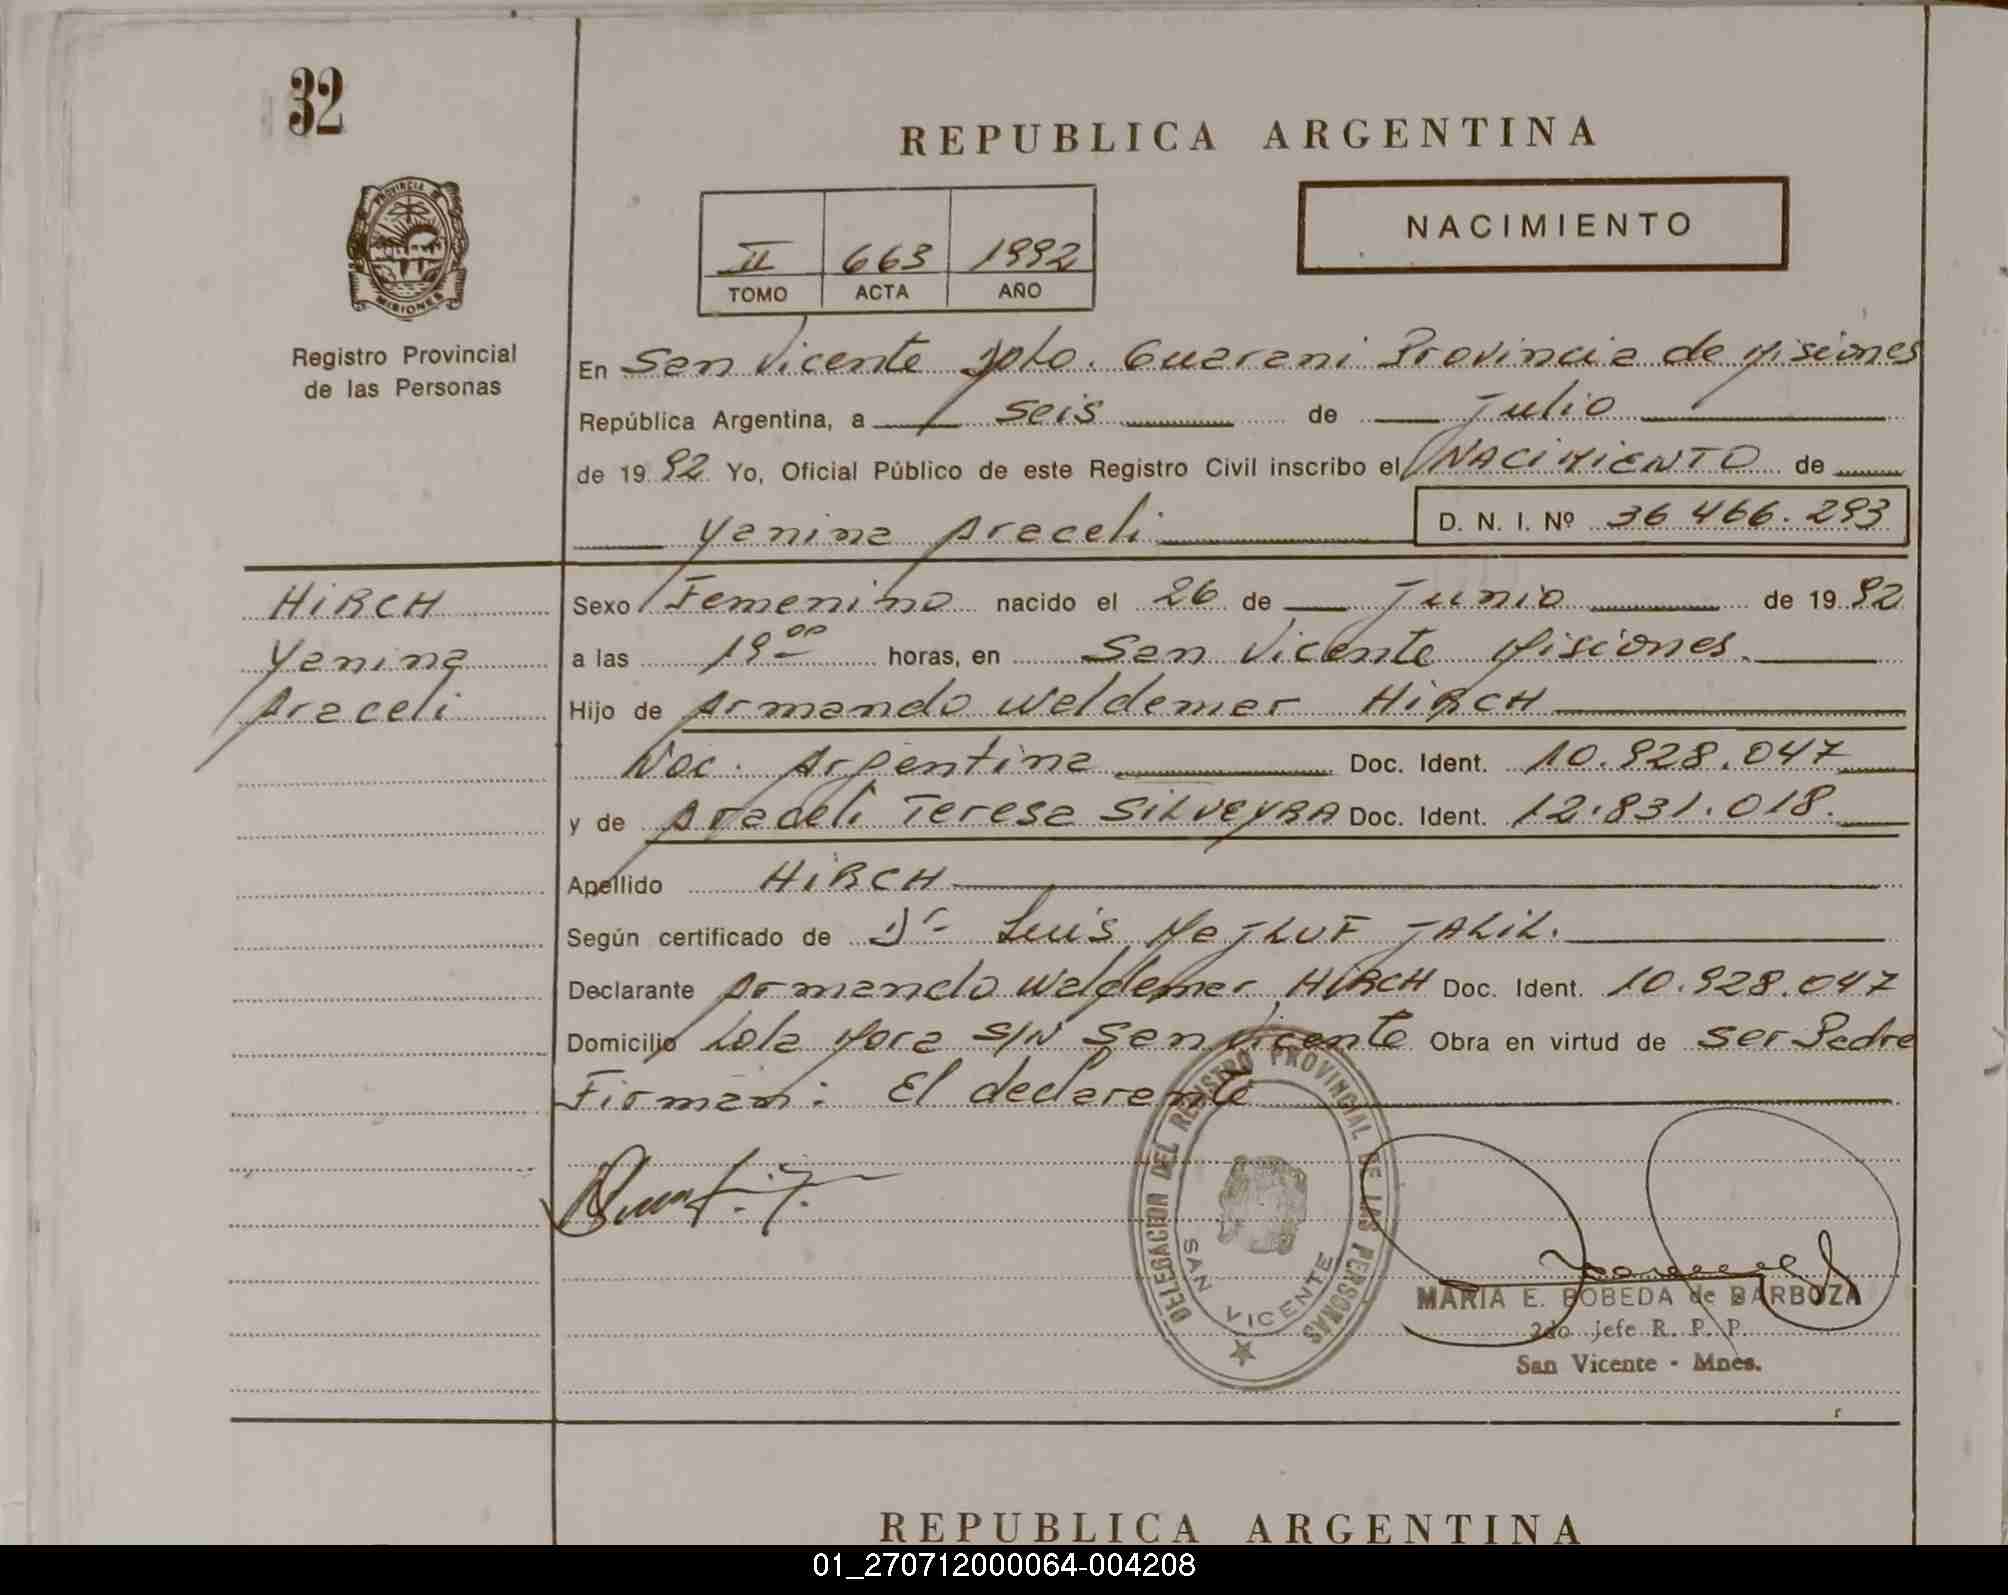 32
REPUBLICA ARGENTINA
NACIMIENTO
II 663 1992
TOMO ACTA AÑO
PROVINCIA DE MISIONES
Registro Provincial
de las Personas
En San Vicente Dpto. Guarani Provincia de Misiones
República Argentina, a seis de Julio
de 1992 Yo, Oficial Público de este Registro Civil inscribo el NACIMIENTO de
Yanina Araceli D. N. I. Nº 36 466.293
HIRCH
Yanina
Araceli
Sexo Femenino nacido el 26 de Junio de 1992
a las 19 00 horas, en San Vicente Misiones.
Hijo de Armando Waldemar HIRCH
Nac. Argentina Doc. Ident. 10.928.047
y de Araceli Teresa SILVEYRA Doc. Ident. 12.831.018.
Apellido HIRCH
Según certificado de Dr Luis MajLUF JALIL.
Declarante Armando Waldemar HIRCH Doc. Ident. 10.928.047
Domicilio Lola Mora S/N San Vicente Obra en virtud de ser Padre
Firman: El declarante
DELEGACION DEL REGISTRO PROVINCIAL DE LAS PERSONAS
SAN VICENTE
MARIA E. BOBEDA de BARBOZA
2do jefe R. P. P.
San Vicente - Mnes.
REPUBLICA ARGENTINA
01_270712000064-004208